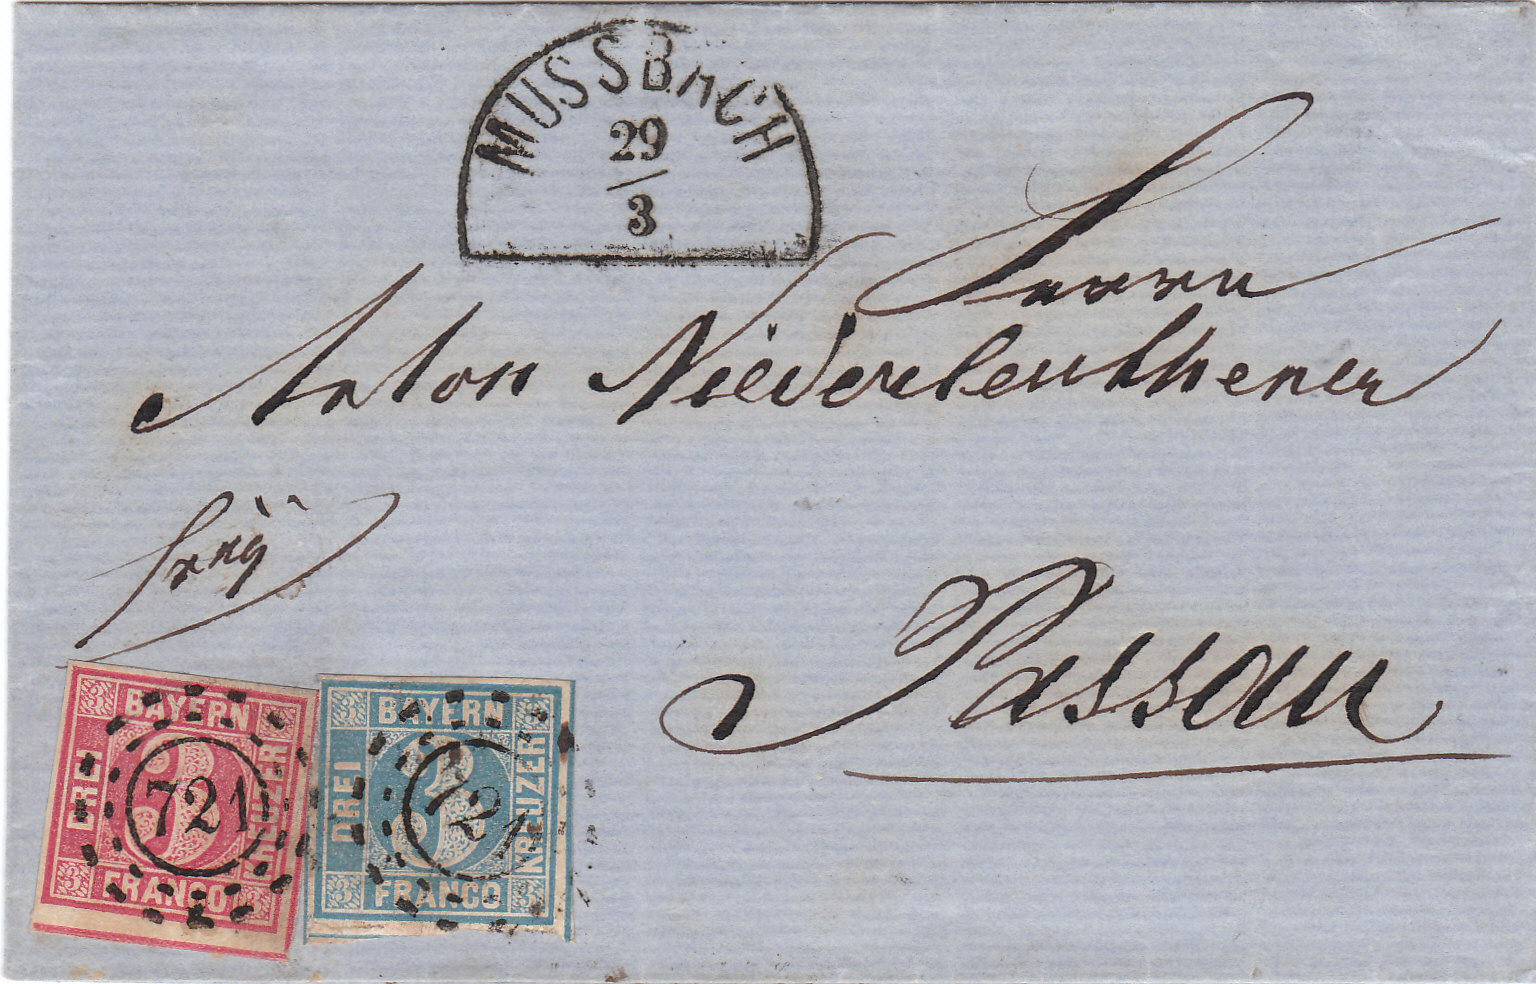 MUSSBACH
29
3
Herrn
Anton Niederleuthener
frey
Passau
BAYERN
DREI
KREUZER
FRANCO
3
721
BAYERN
DREI
KREUZER
FRANCO
3
721